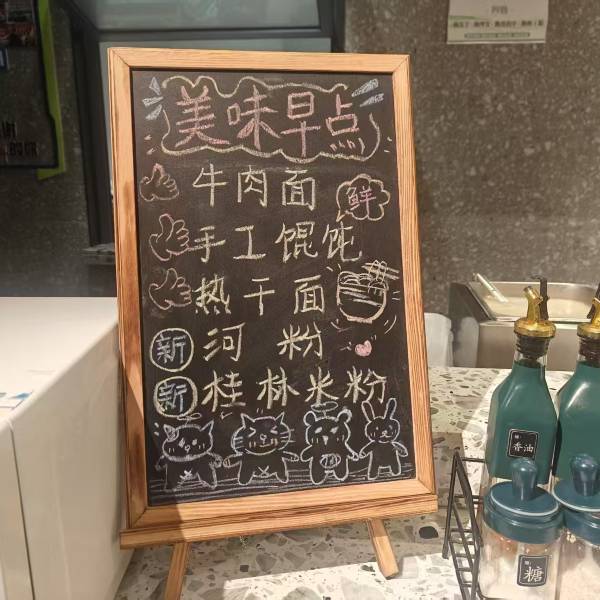 美味早点
牛肉面 鲜
手工馄饨
热干面
新 河粉
新 桂林米粉
香油
糖